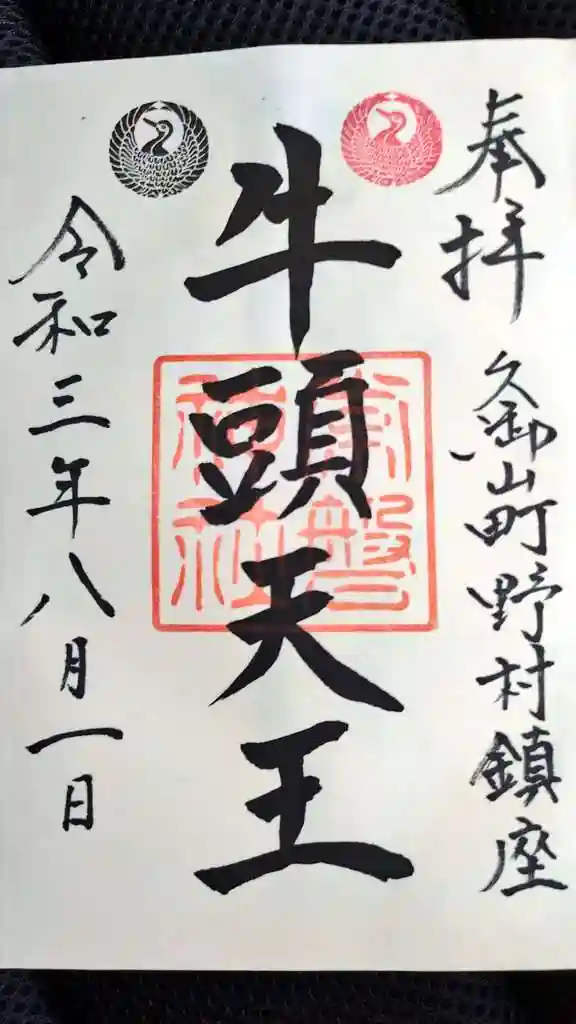 奉拝
久御山町野村鎮座
牛頭天王
常盤神社
令和三年八月一日